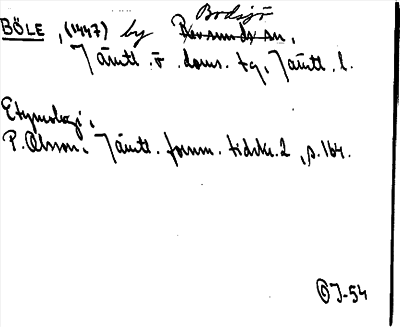 Bodsjö
BÖLE, (1447) by Revsunds sn,
Jämtl. ö. doms. tg, Jämtl. l.
Etymologi.
P. Olsson. Jämtl. fornm. tidskr. 2, s. 164.
ÖJ-54